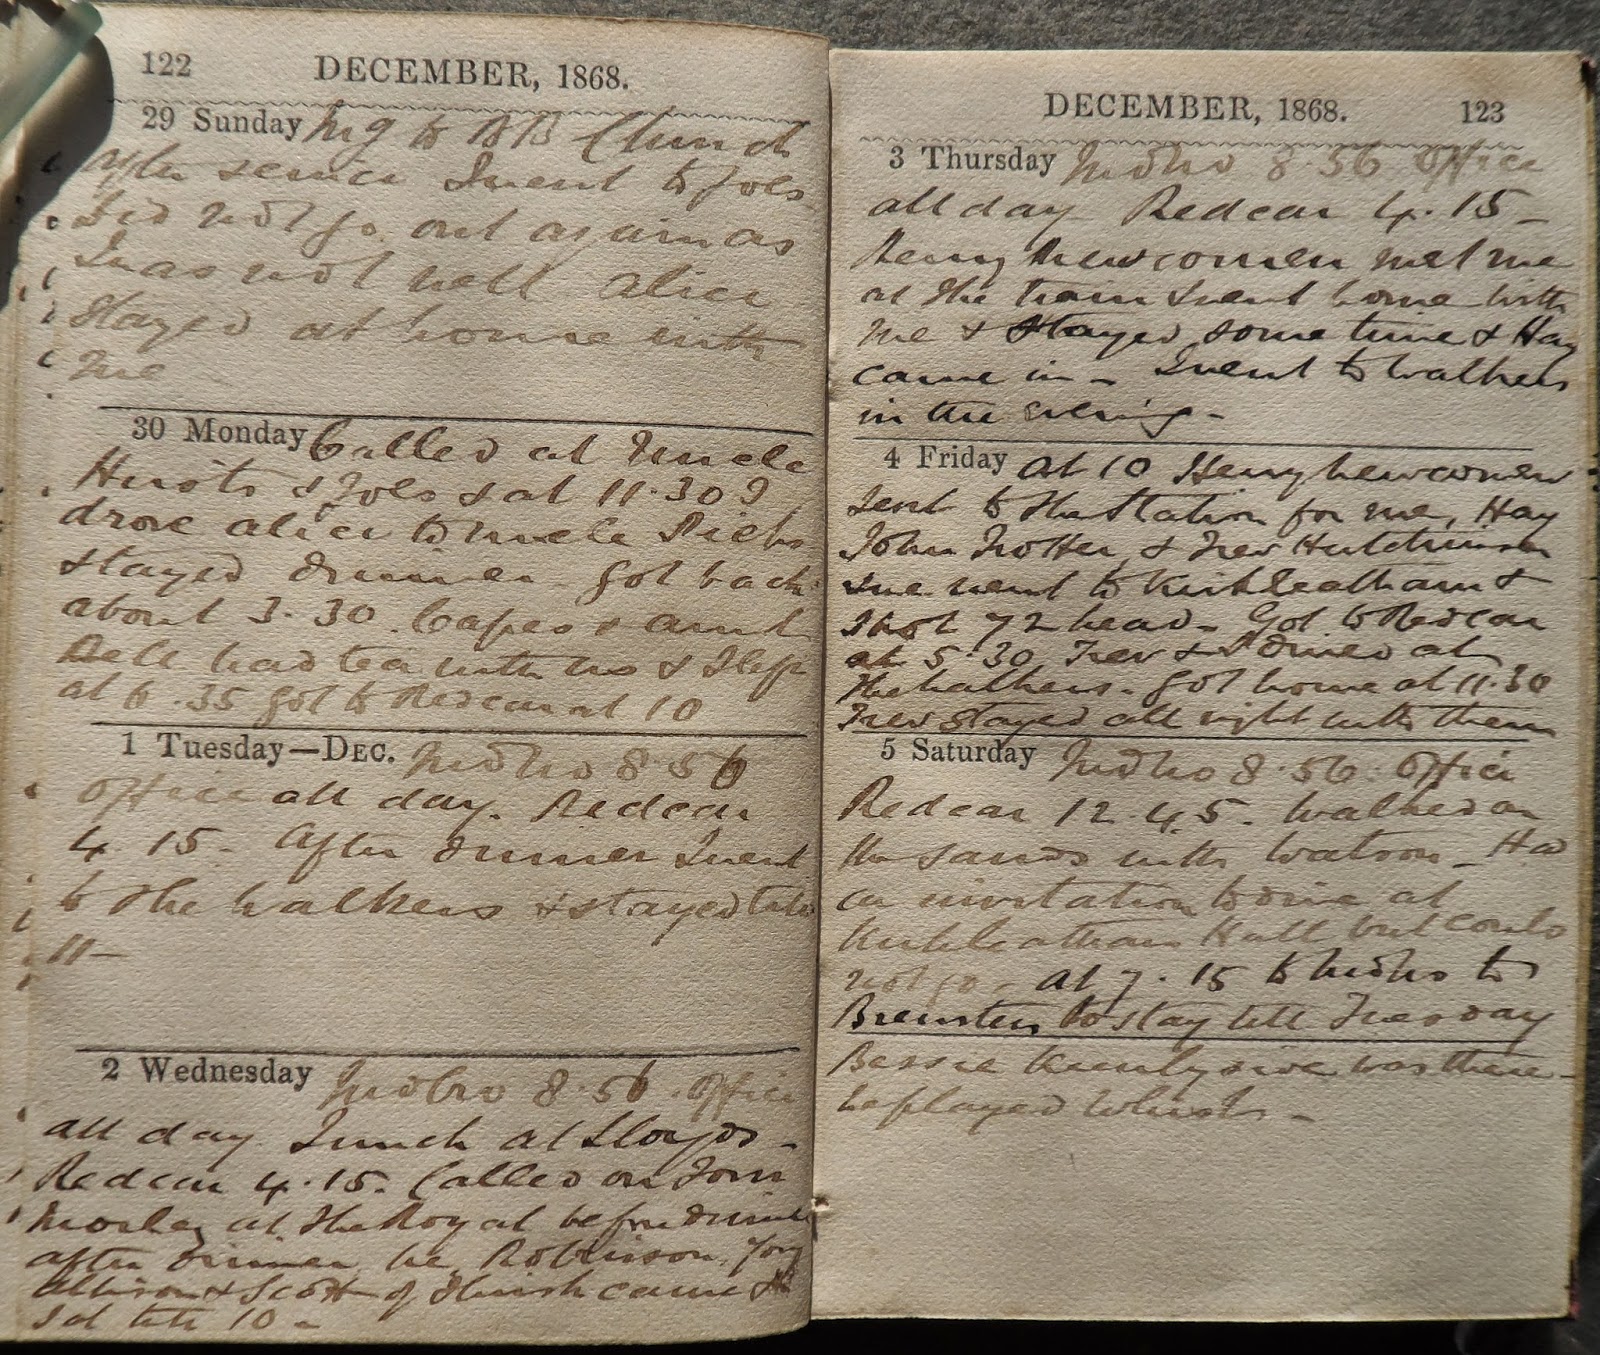 122 DECEMBER, 1868.
29 Sunday Mg to Church
After service I went to Joes
Did not go out again as
I was not well Alice
stayed at home with
me
30 Monday Called at Uncle
Hirsts & Joes & at 11.30 I
drove Alice to Uncle Dicks
stayed dinner. Got back
about 3.30. Capes & Aunt
Bell had tea with us & I left
at 6.35 got to Redcar at 10
1 Tuesday—DEC. Midbro 8.56
Office all day. Redcar
4.15 - After dinner I went
to the Walkers & stayed till
11 -
2 Wednesday Midbro 8.56. Office
all day Lunch at Lloyds -
Redcar 4.15. Called on Tom
Morley at the Royal before dinner
after dinner he, Robinson,
& Scott of came &
sat till 10 -
DECEMBER, 1868. 123
3 Thursday Midbro 8.56 Office
all day Redcar 4.15 -
Henry Newcomen met me
at the train & went home with
me & stayed some time & Hay
came in - I went to Walkers
in the evening -
4 Friday At 10 Henry Newcomen
sent to the Station for me, Hay
John Trotter & Trev Hutchinson
& we went to Kirkleatham &
shot 72 head - Got to Redcar
at 5.30 Trev & I dined at
the Walkers - got home at 11.30
Trev stayed all night with them
5 Saturday Midbro 8.56 Office
Redcar 12.45. Walked on
the sands with Watson - Had
an invitation to dine at
Kirkleatham Hall but could
not go - At 7.15 to Midbro to
to stay till Tuesday
Bessie was there -
We played Whist -